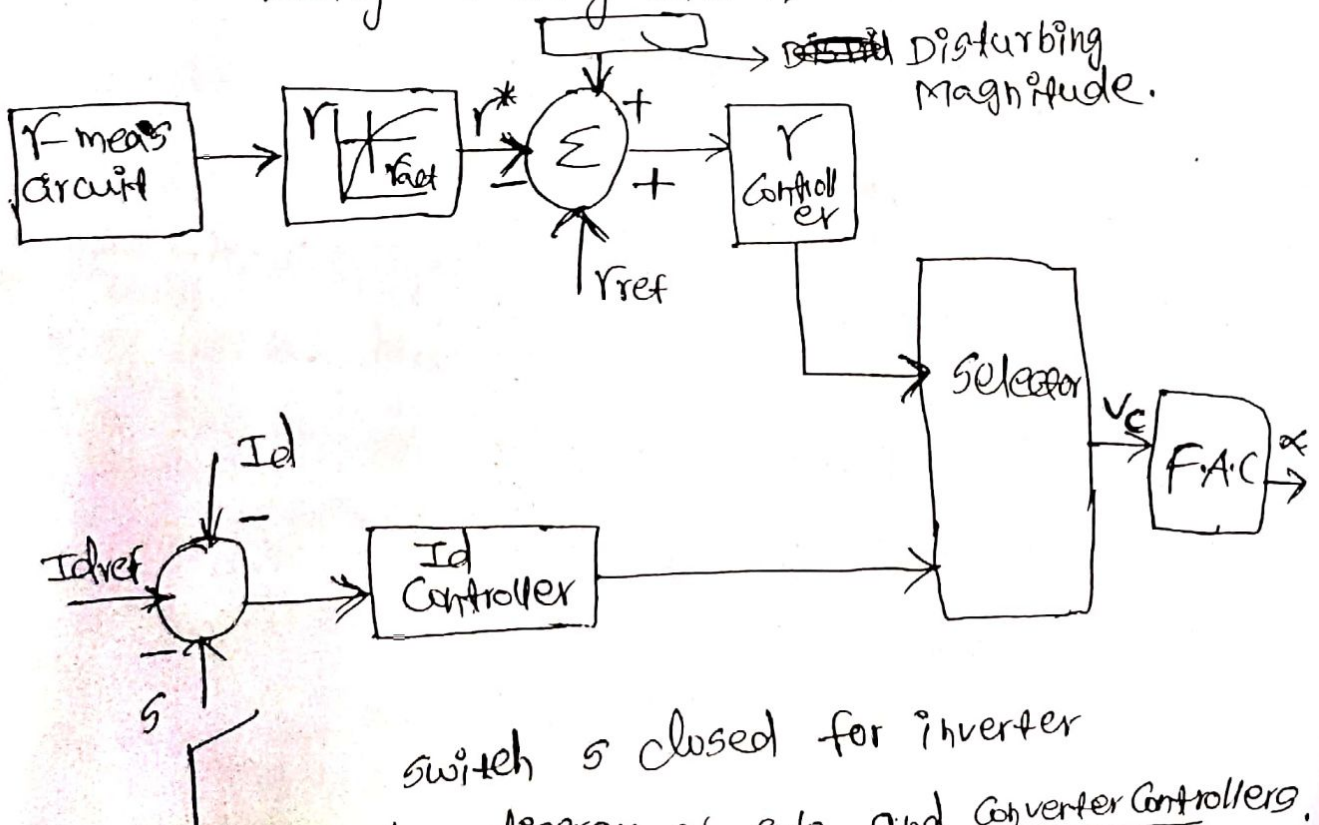 Disturbing
Magnitude.
r-meas
circuit
r
ract
r*
Σ
+
-
+
rref
r
Controll
er
Selector
Vc
F.A.C
α
Id
-
Idref
-
Id
Controller
S
switch s closed for inverter
and Converter Controllers.